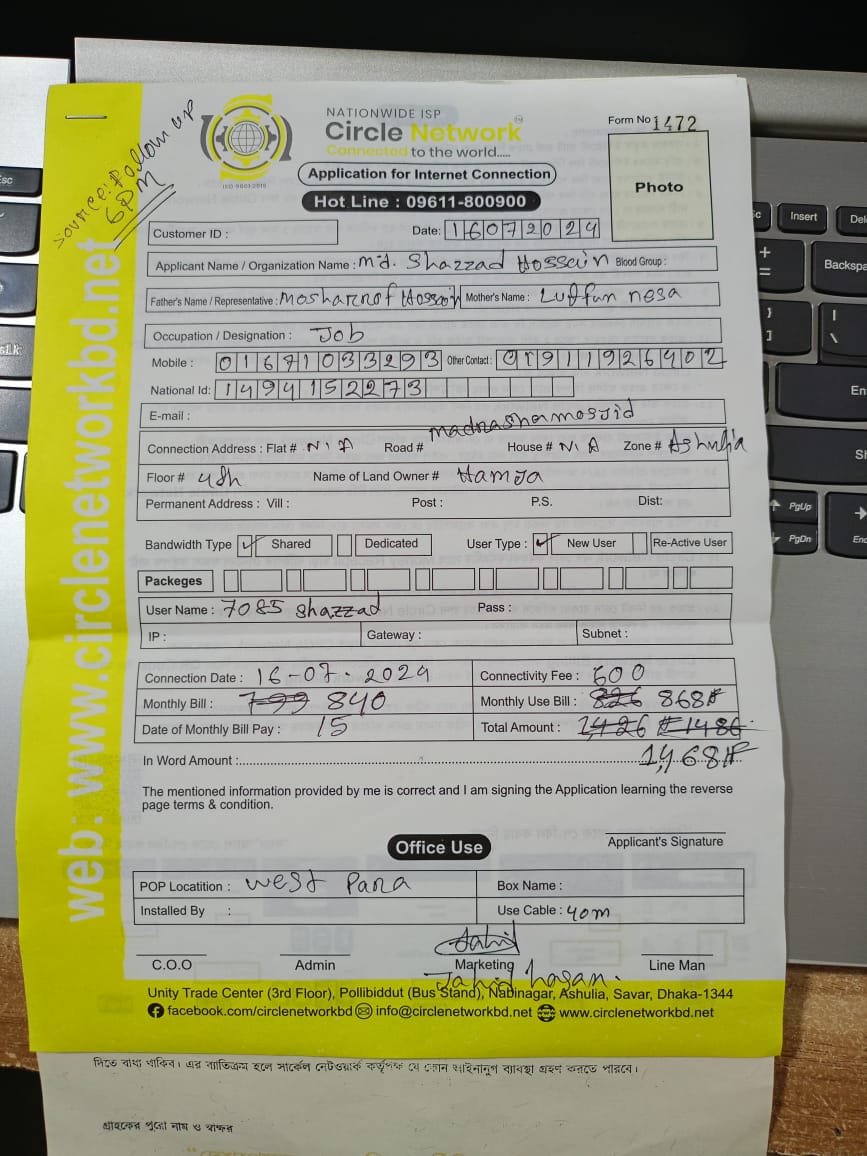 NATIONWIDE ISP
Circle Network
Connected to the world.....
ISO-9001:2015
Form No 1472
Source: Follow up
6PM
Application for Internet Connection
Photo
Hot Line : 09611-800900
Customer ID :
Date: 16072024
Applicant Name / Organization Name : Md. Shazzad Hossain Blood Group :
Father's Name / Representative : Mosharrof Hossain Mother's Name : Lutfun nesa
Occupation / Designation : Job
Mobile : 01671033293 Other Contact : 01911926402
National Id: 1494152273
E-mail :
Connection Address : Flat # N/A Road # madrasharmosjid House # N/A Zone # Ashulia
Floor # 4th Name of Land Owner # Hamja
Permanent Address : Vill : Post : P.S. Dist:
Bandwidth Type Shared Dedicated User Type : New User Re-Active User
Packeges
User Name : 7085 shazzad Pass :
IP : Gateway : Subnet :
Connection Date : 16-07-2024 Connectivity Fee : 600
Monthly Bill : 799 840 Monthly Use Bill : 826 868
Date of Monthly Bill Pay : 15 Total Amount : 1,426 1486
In Word Amount : 1,468
The mentioned information provided by me is correct and I am signing the Application learning the reverse
page terms & condition.
Applicant's Signature
Office Use
POP Locatition : West Para Box Name :
Installed By : Use Cable : 40m
Jahid
C.O.O Admin Marketing Line Man
Jahid hasan.
Unity Trade Center (3rd Floor), Pollibiddut (Bus Stand), Nabinagar, Ashulia, Savar, Dhaka-1344
facebook.com/circlenetworkbd info@circlenetworkbd.net www.circlenetworkbd.net
web: www.circlenetworkbd.net
দিতে বাধ্য থাকিব। এর ব্যতিক্রম হলে সার্কেল নেটওয়ার্ক কর্তৃপক্ষ যে কোন আইনানুগ ব্যবস্থা গ্রহণ করতে পারবে।
গ্রাহকের পুরো নাম ও স্বাক্ষর
esc
Insert
Del
Backspa
En
Sh
PgUp
PgDn
End